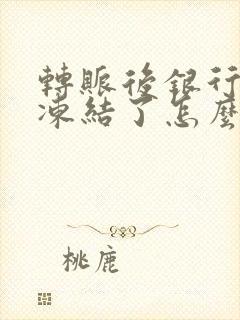 轉賬後銀行
凍結了怎麼
桃鹿